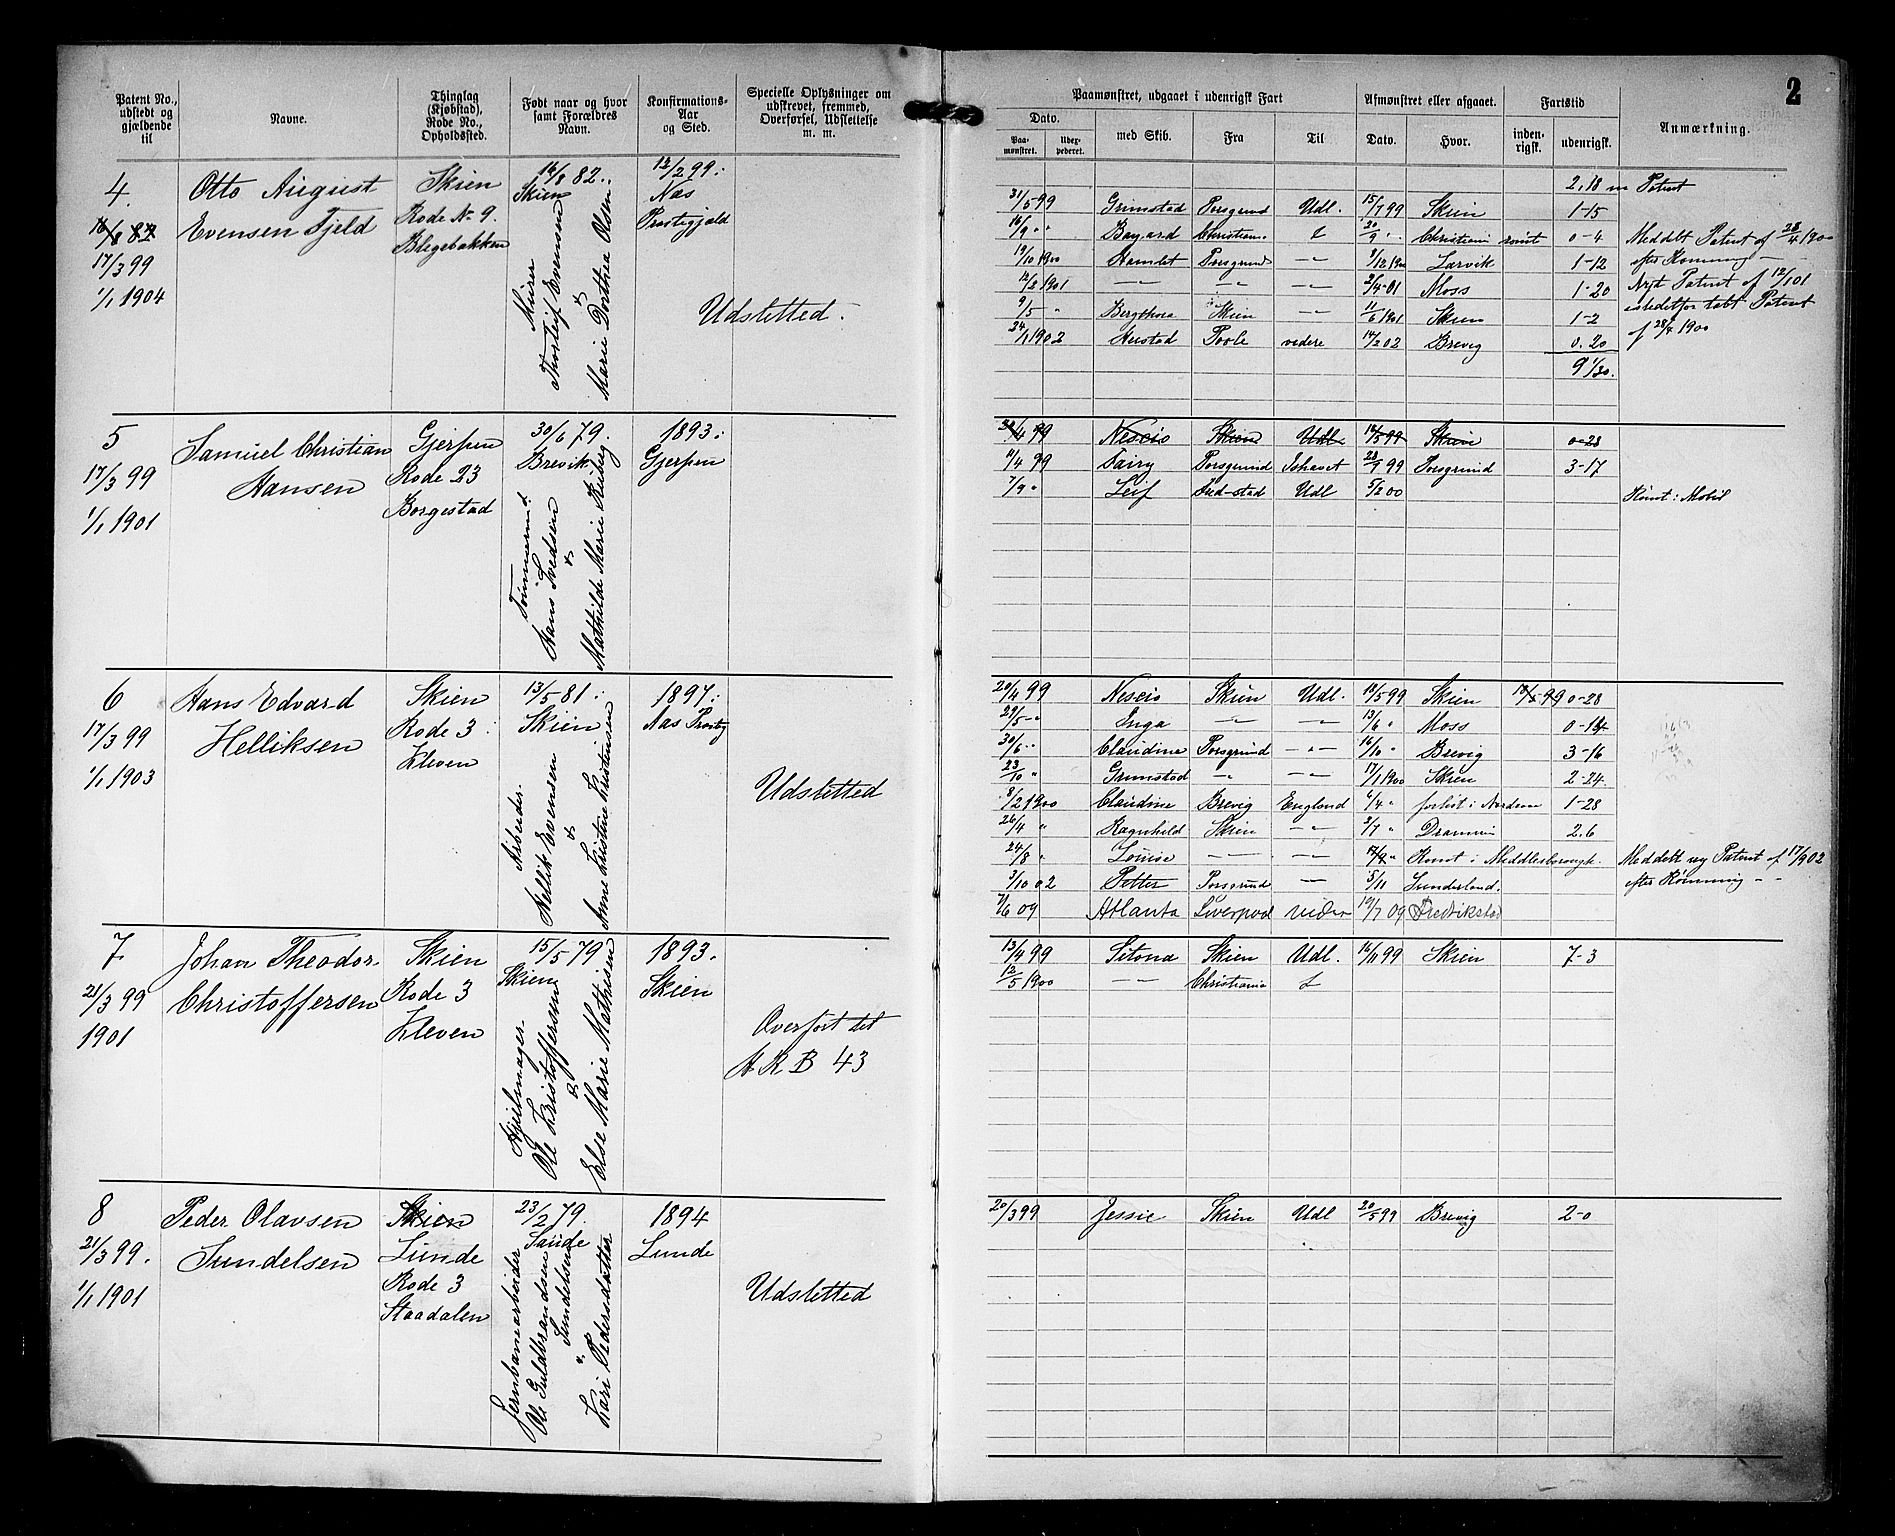 2
Patent No., udstedt og gjældende til
Navne.
Thinglag (Kjøbstad), Rode No., Opholdssted.
Født naar og hvor samt Forældres Navn.
Konfirmations-Aar og Sted.
Specielle Oplysninger om udskrevet, fremmed, Overførsel, Udslettelse m. m.
Paamønstret, udgaaet i udenrigsk Fart
Dato.
Paamønstret.
med Skib.
Fra
Til
Afmønstret eller afgaaet.
Dato.
Hvor.
Fartstid
indenrigsk.
udenrigsk.
Anmærkning.
4.
17/3 99
1/1 1904
Otto August
Evensen Fjeld
Skien
Rode No 9.
Blegebakken
14/8 82.
Skien
Murer
Thorleif Evensen
&
Marie Dorthea Olsen
12/2 99.
Nas
Prestegjæld
Udsletted.
2.18 m Patent
31/5 99 Grimstad Porsgrund Udl. 15/7 99 Skien 1-15
16/9 " Bayard Christiania 20/9 " Christiania rømt 0-4
19/10 1900 Hamlet Porsgrund -"- 1/12 1900 Larvik 1-12
12/2 1901 -"- -"- -"- 2/4 01 Moss 1-20
9/5 " Bergthora Skien -"- 11/6 1901 Skien 1-2
24/1 1902 Poole videre 14/2 02 Brevig 0.20
9 1/30.
Meddelt Patent af 28/4 1900
efter Rømning
Nyt Patent af 12/1 01
istedetfor tabt Patent
af 28/4 1900
5
17/3 99
1/1 1901
Samuel Christian
Hansen
Gjerpen
Rode 23
Borgestad
30/6 79.
Brevik
Tømmermd.
Hans Svedsen
&
Mathilde Marie
1893.
Gjerpen
Nescio Skien Udl. 18/5 99 Skien 0-28
11/4 99 Fairy Porsgrund Ishavet 28/7 99 Porsgrund 3-17
7/9 " Leif Fred-stad Udl 5/2 00
Rømt i Mobil
6
17/3 99
1/1 1903
Hans Edvard
Helliksen
Skien
Rode 3
Kleven
13/5 81.
Skien
Arbeider.
Hellik Evensen
&
Anne Kristine Kristiansen
1897.
Nas Prestg
Udsletted
20/4 99 Nescio Skien Udl. 18/5 99 Skien 18/5 99 0-28
29/5 -" Inga -"- -"- 13/6 " Moss 0-14
30/6 " Claudine Porsgrund -"- 16/10 " Brevig 3-16
23/10 " Grimstad -"- -"- 17/1 1900 Skien 2-24.
8/2 1900 Claudine Brevig England 6/4 " forlist i Nordsøen 1-28
26/4 " Ragnhild Skien -"- 2/7 " Drammen 2.6
24/8 " Louise -"- -"- Rømt i Middlesborough.
3/10 02 Petter Porsgrund -"- 5/11 Sunderland.
7/6 09 Atlanta Liverpool videre 19/7 09 Fredrikstad
Meddelt ny Patent af 17/9 02
efter Rømning
7
21/3 99
1901
Johan Theodor
Christoffersen
Skien
Rode 3
Kleven
15/5 79
Skien
Hjulmager.
Ole Kristoffersen
&
Else Marie Mathisen
1893.
Skien
Overført til
H R B 43
13/4 99 Sitona Skien Udl. 16/11 99 Skien 7-3
12/5 1900 -"- Christiania
8
21/3 99.
1/1 1901
Peder Olavsen
Sundelsen
Skien
Lunde
Rode 3
Staadalen
23/2 79.
Saude
Jernbanearbeider
Ole Guldbrandsen
Sundelsen
Kari Pedersdatter
1894
Lunde
Udsletted
20/3 99 Jessie Skien Udl 20/5 99 Brevig 2-0